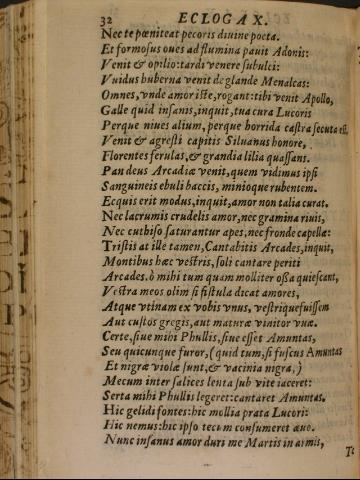 32 ECLOGA X.
Nec te pœniteat pecoris diuine poeta.
Et formosus oues ad flumina pauit Adonis:
Venit & opilio: tardi venere subulci:
Vuidus huberna venit de glande Menalcas:
Omnes, vnde amor iste, rogant: tibi venit Apollo,
Galle quid insanis, inquit, tua cura Lucoris
Perque niues alium, perque horrida castra secuta est.
Venit & agresti capitis Siluanus honore,
Florentes ferulas, & grandia lilia quassans.
Pan deus Arcadiæ venit, quem vidimus ipsi
Sanguineis ebuli baccis, minioque rubentem.
Ecquis erit modus, inquit, amor non talia curat.
Nec lacrumis crudelis amor, nec gramina riuis,
Nec cuthiso saturantur apes, nec fronde capellæ:
Tristis at ille tamen, Cantabitis Arcades, inquit,
Montibus hæc vestris, soli cantare periti
Arcades. ô mihi tum quam molliter ossa quiescant,
Vestra meos olim si fistula dicat amores,
Atque vtinam ex vobis vnus, vestrique fuissem
Aut custos gregis, aut maturæ vinitor vuæ.
Certe, siue mihi Phullis, siue esset Amuntas,
Seu quicunque furor, (quid tum, si fuscus Amuntas
Et nigræ violæ sunt, & vacinia nigra,)
Mecum inter salices lenta sub vite iaceret:
Serta mihi Phullis legeret: cantaret Amuntas.
Hic gelidi fontes: hic mollia prata Lucori:
Hic nemus: hic ipso tecum consumeret æuo.
Nunc insanus amor duri me Martis in armis,